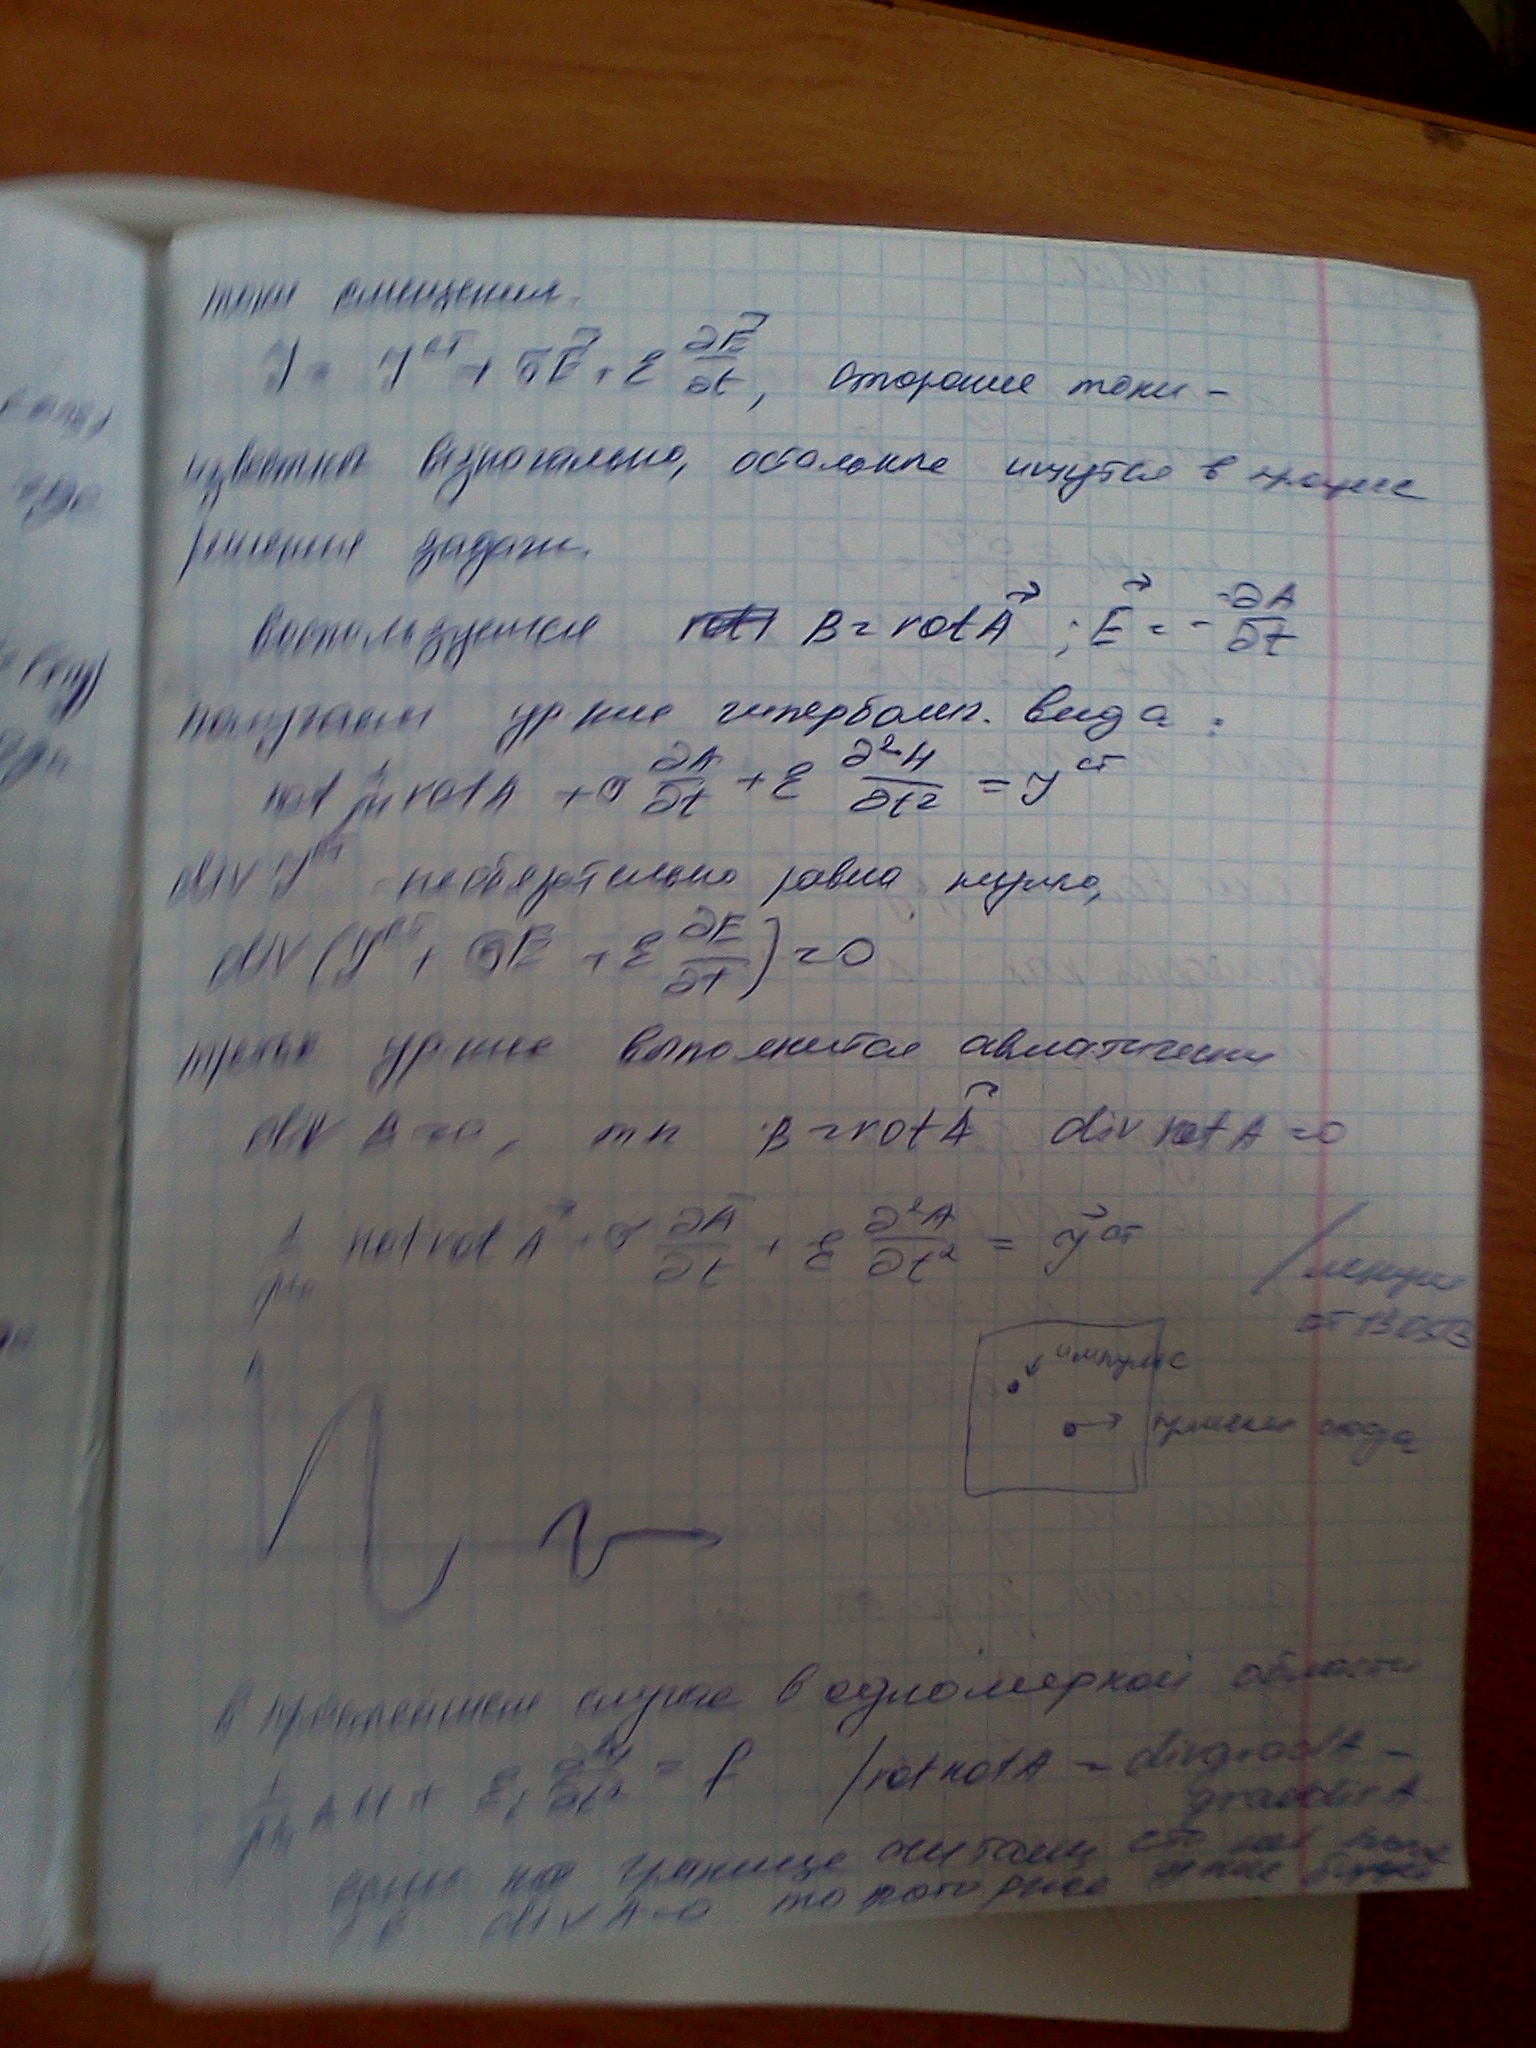 токи смещения.
J = J^ст + σE⃗ + ε ∂E⃗/∂t, сторонние токи -
известны изначально, остальные ищутся в процессе
решения задачи.
воспользуемся B = rot A⃗ ; E⃗ = - ∂A/∂t
получаем ур-ние гиперболич. вида:
rot 1/μ rot A + σ ∂A/∂t + ε ∂²A/∂t² = J^ст
div J^ст - необязательно равна нулю,
div (J^ст + σE + ε ∂E/∂t) = 0
третье ур-ние выполнится автоматически
div B = 0, тк B = rot A⃗ div rot A = 0
1/μ rot rot A⃗ + σ ∂A⃗/∂t + ε ∂²A/∂t² = J⃗^ст
/лекция
от
импульс
сюда
в случае в одномерной области
= f /rot rot A = div grad A -
grad div A
на границе
div A = 0 то